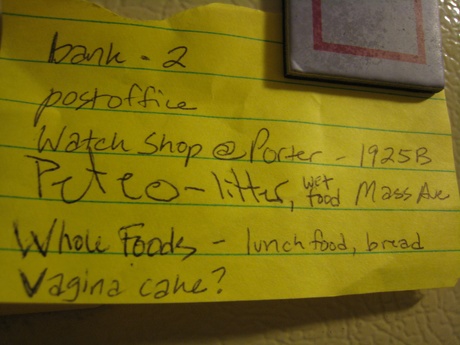 bank - 2
postoffice
Watch Shop @ Porter - 1925B
Petco - litter, wet food Mass Ave
Whole Foods - lunch food, bread
Vagina cake?